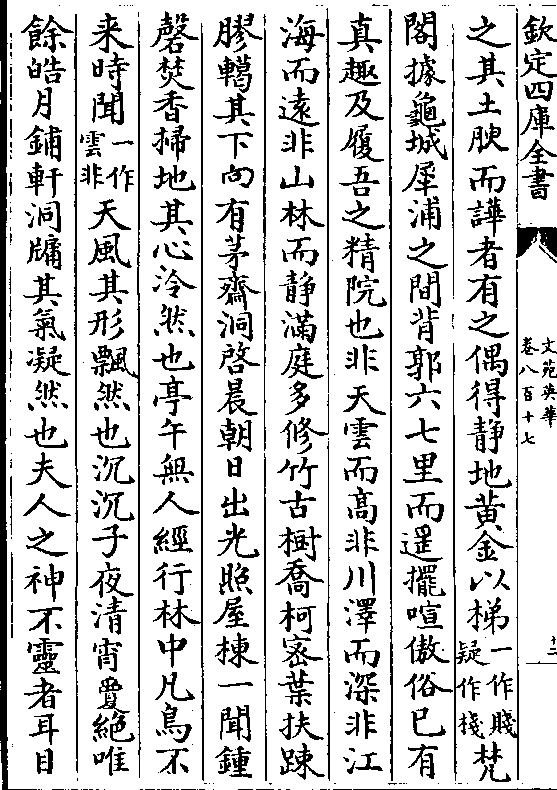 欽定四庫全書
文苑英華
卷八百十七
十二
之其土腴而譁者有之偶得静地黄金以梯一作賤疑作棧梵
閣據龜城犀浦之間背郭六七里而遥擺喧傲俗已有
真趣及履吾之精院也非天雲而高非川澤而深非江
海而逺非山林而静滿庭多修竹古樹喬柯宻葉扶踈
膠轕其下向有茅齋洞啓晨朝日出光照屋棟一聞鍾
磬焚香掃地其心泠然也亭午無人經行林中凡鳥不
来時聞一作雲非天風其形飄然也沉沉子夜清宵𡖖絶唯
餘皓月鋪軒洞牖其氣凝然也夫人之神不靈者耳目